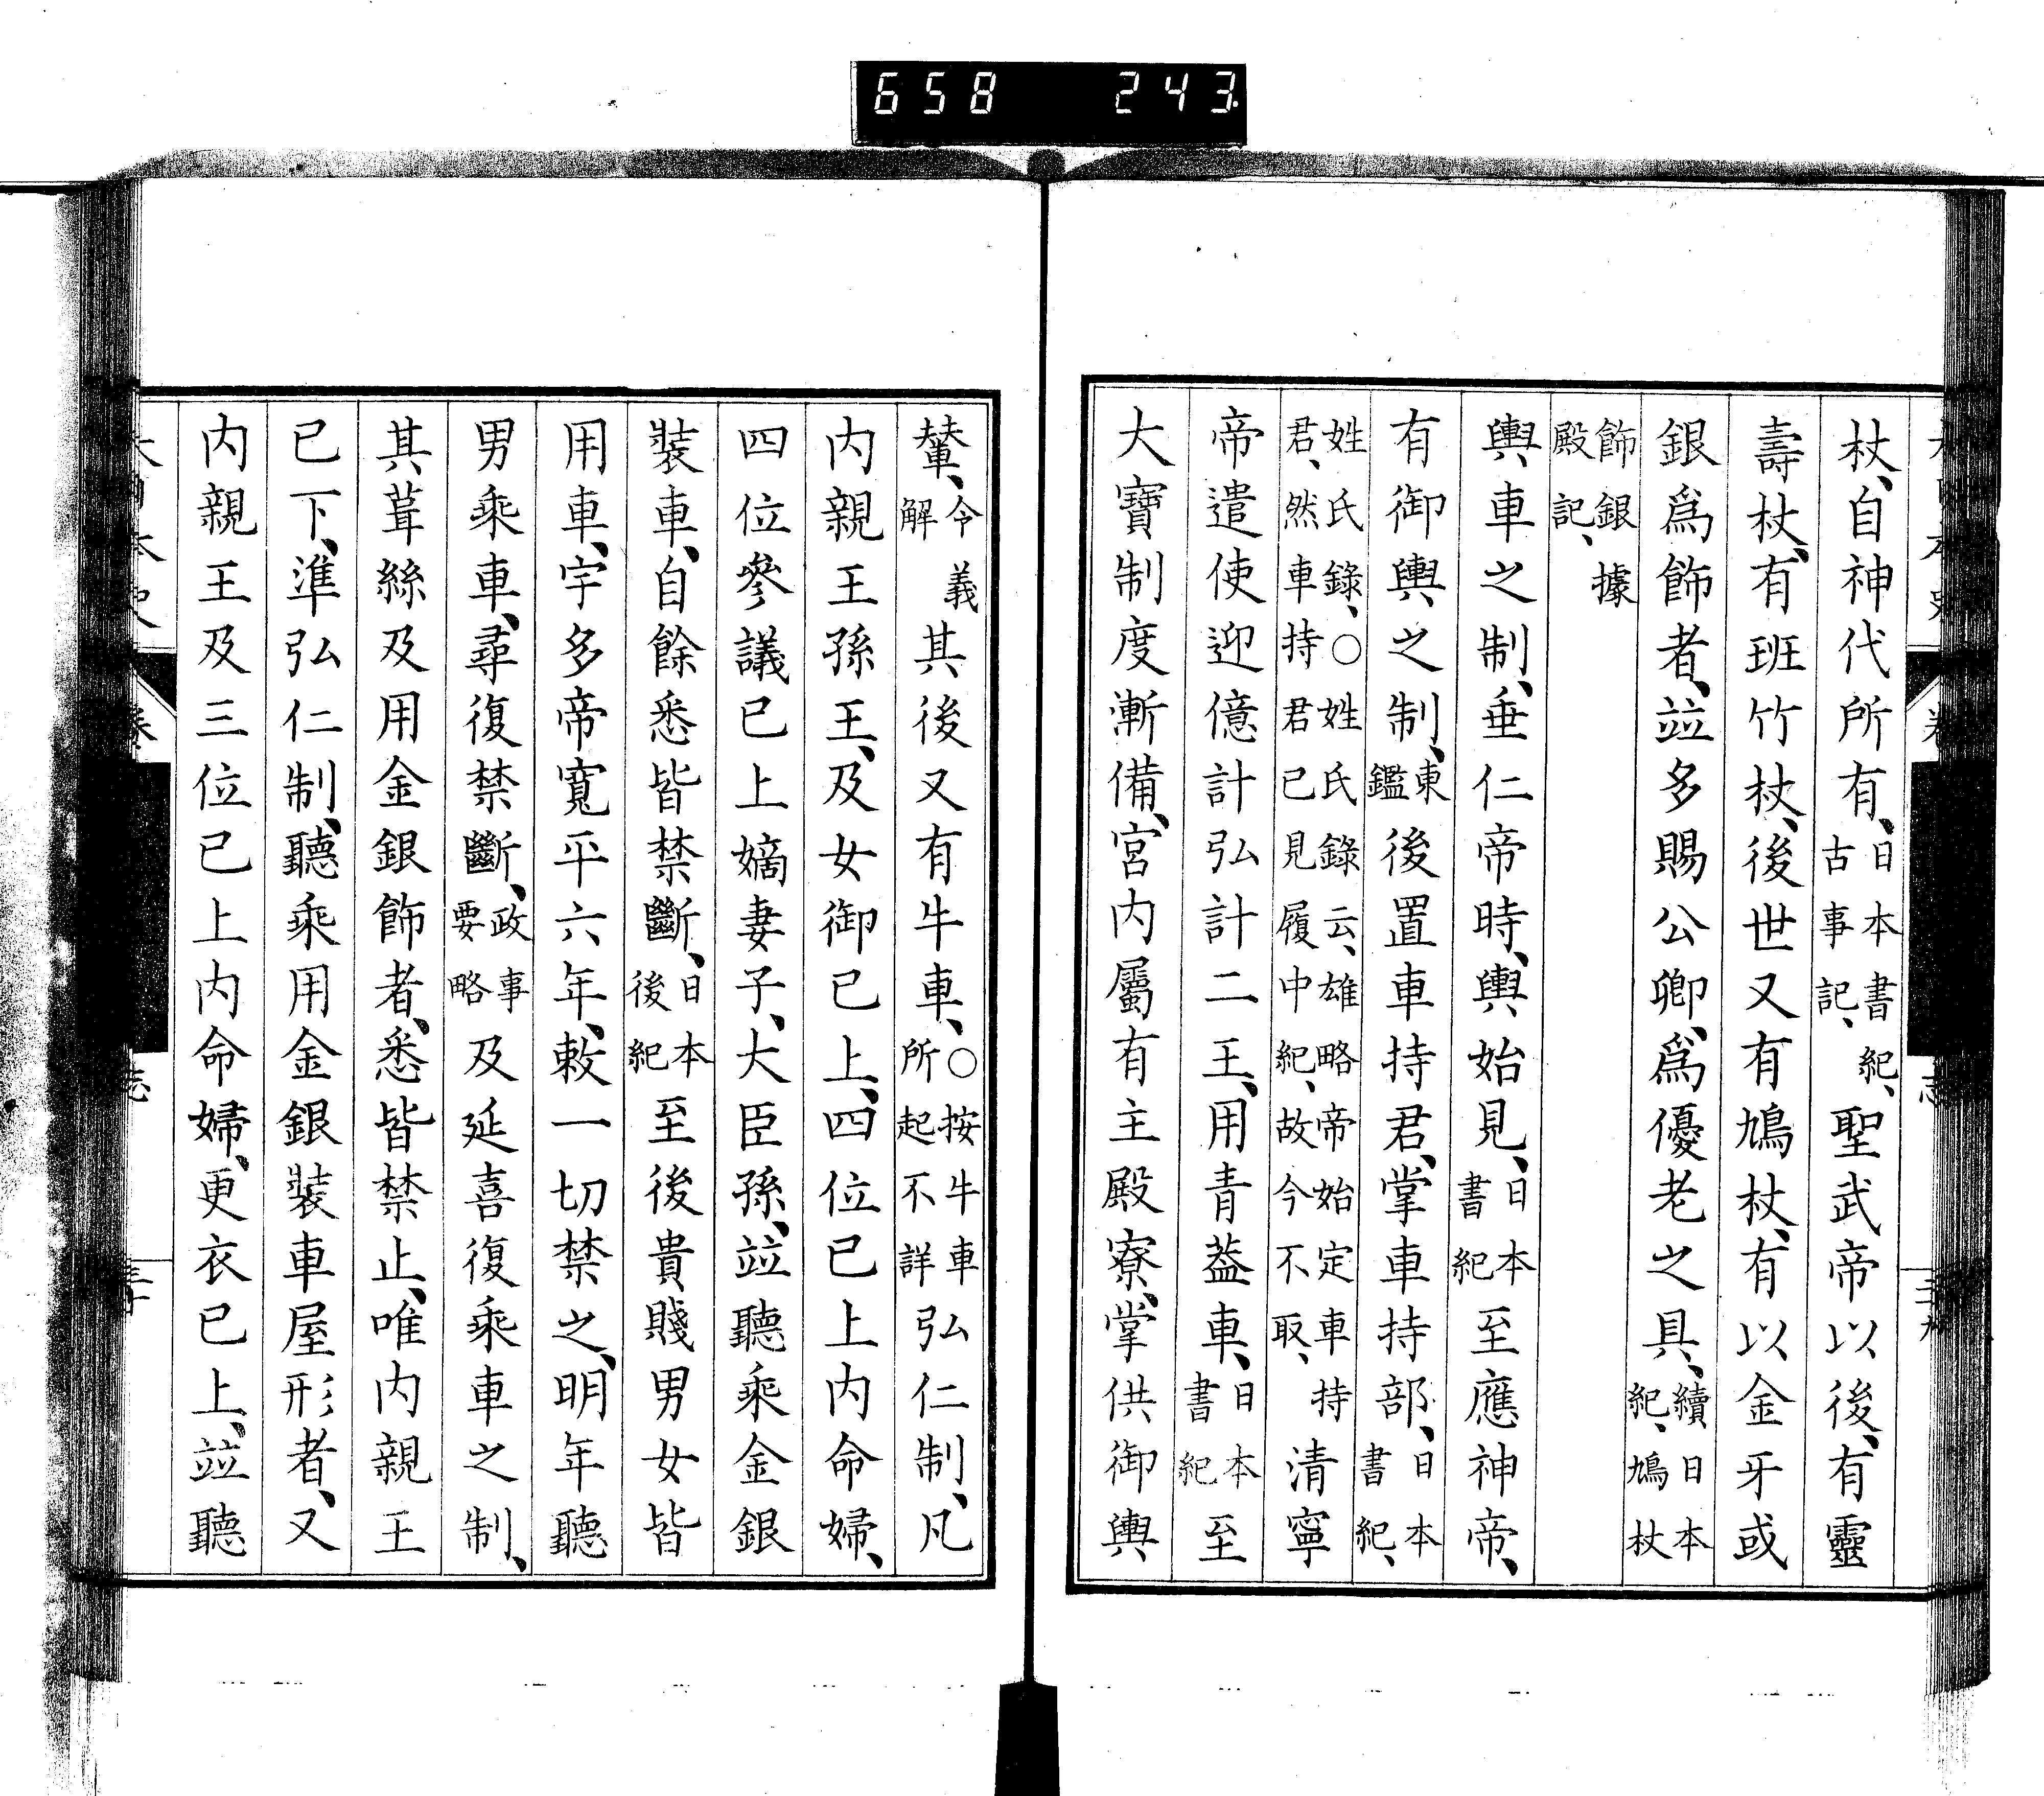 658 243
杖、自神代所有、日本書紀、古事記、聖武帝以後、有靈
壽杖、有班竹杖、後世又有鳩杖、有以金牙或
銀爲飾者、竝多賜公卿、爲優老之具、續日本紀、鳩杖
飾銀據殿記、
輿車之制、垂仁帝時、輿始見、日本書紀至應神帝、
有御輿之制、東鑑後置車持君、掌車持部、日本書紀、
姓氏錄、○姓氏錄云、雄略帝始定車持君、然車持君已見履中紀、故今不取、清寧
帝遣使迎億計弘計二王、用青蓋車、日本書紀至
大寶制度漸備、宮内屬有主殿寮、掌供御輿
輦、令義解其後又有牛車、○按牛車所起不詳弘仁制、凡
内親王孫王、及女御已上、四位已上内命婦、
四位參議已上嫡妻子、大臣孫、竝聽乘金銀
裝車、自餘悉皆禁斷、日本後紀至後貴賤男女皆
用車、宇多帝寬平六年、敕一切禁之、明年聽
男乘車、尋復禁斷、政事要略及延喜復乘車之制、
其葺絲及用金銀飾者、悉皆禁止、唯内親王
已下、準弘仁制、聽乘用金銀裝車屋形者、又
内親王及三位已上内命婦、更衣已上、竝聽